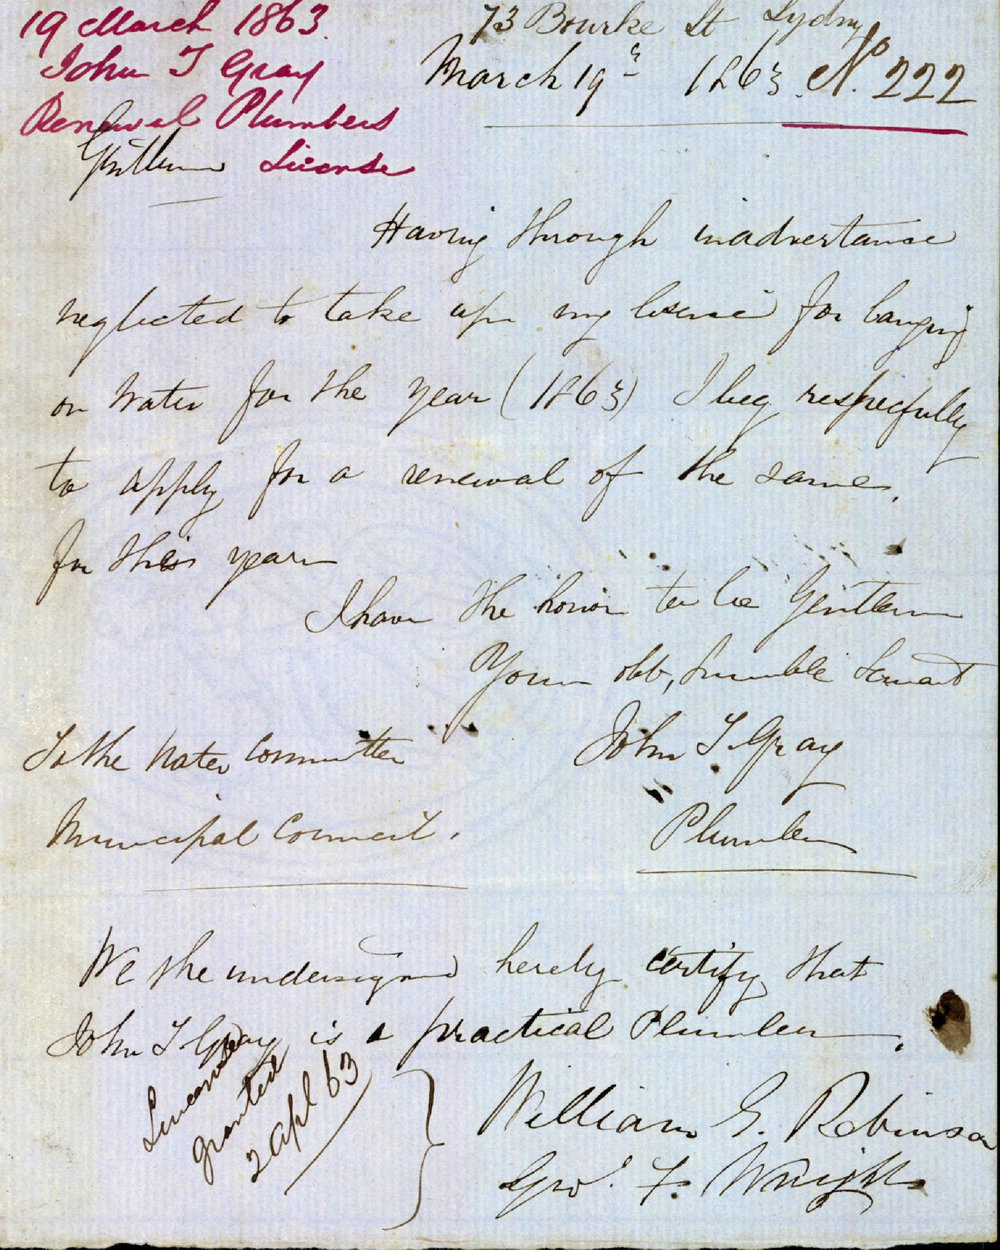 19 March 1863.
John T Gray
Renewal Plumbers
License
73 Bourke St Sydny
March 19th 1863. No. 222
Gentlemen
Having through inadvertance
neglected to take up my lisence for banging
on Water for the year (1863) I beg respecfully
to apply for a renewal of the same.
for this year
I have the honor to be Gentlemen
Your obb, humble Servant
John T Gray
Plumber
To the Water Committee
Municipal Council.
We the undersigned hereby certify that
John T Gray is a practical Plumber.
License
granted
2 Apl 63
William G. Robinson
Geo. F. Wright